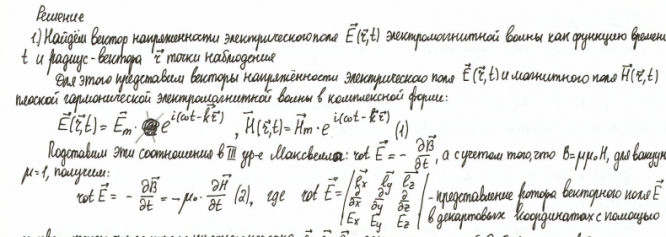 Решение
1.) Найдём вектор напряженности электрического поля E⃗(r⃗,t) электромагнитной волны как функцию времени
t и радиус-вектора r⃗ точки наблюдения
Для этого представим векторы напряжённости электрического поля E⃗(r⃗,t) и магнитного поля H⃗(r⃗,t)
плоской гармонической электромагнитной волны в комплексной форме:
E⃗(r⃗,t) = E⃗m · e^i(ωt-k⃗r⃗), H⃗(r⃗,t) = H⃗m · e^i(ωt-k⃗r⃗) (1)
Подставим эти соотношения в III ур-е Максвелла: rot E⃗ = - ∂B⃗/∂t, а с учетом того, что B=μμ₀H, для вакуума
μ=1, получим:
rot E⃗ = - ∂B⃗/∂t = -μ₀ · ∂H⃗/∂t (2), где rot E⃗ = | e⃗x e⃗y e⃗z ; ∂/∂x ∂/∂y ∂/∂z ; Ex Ey Ez | - представление ротора векторного поля E⃗
в декартовых координатах с помощью